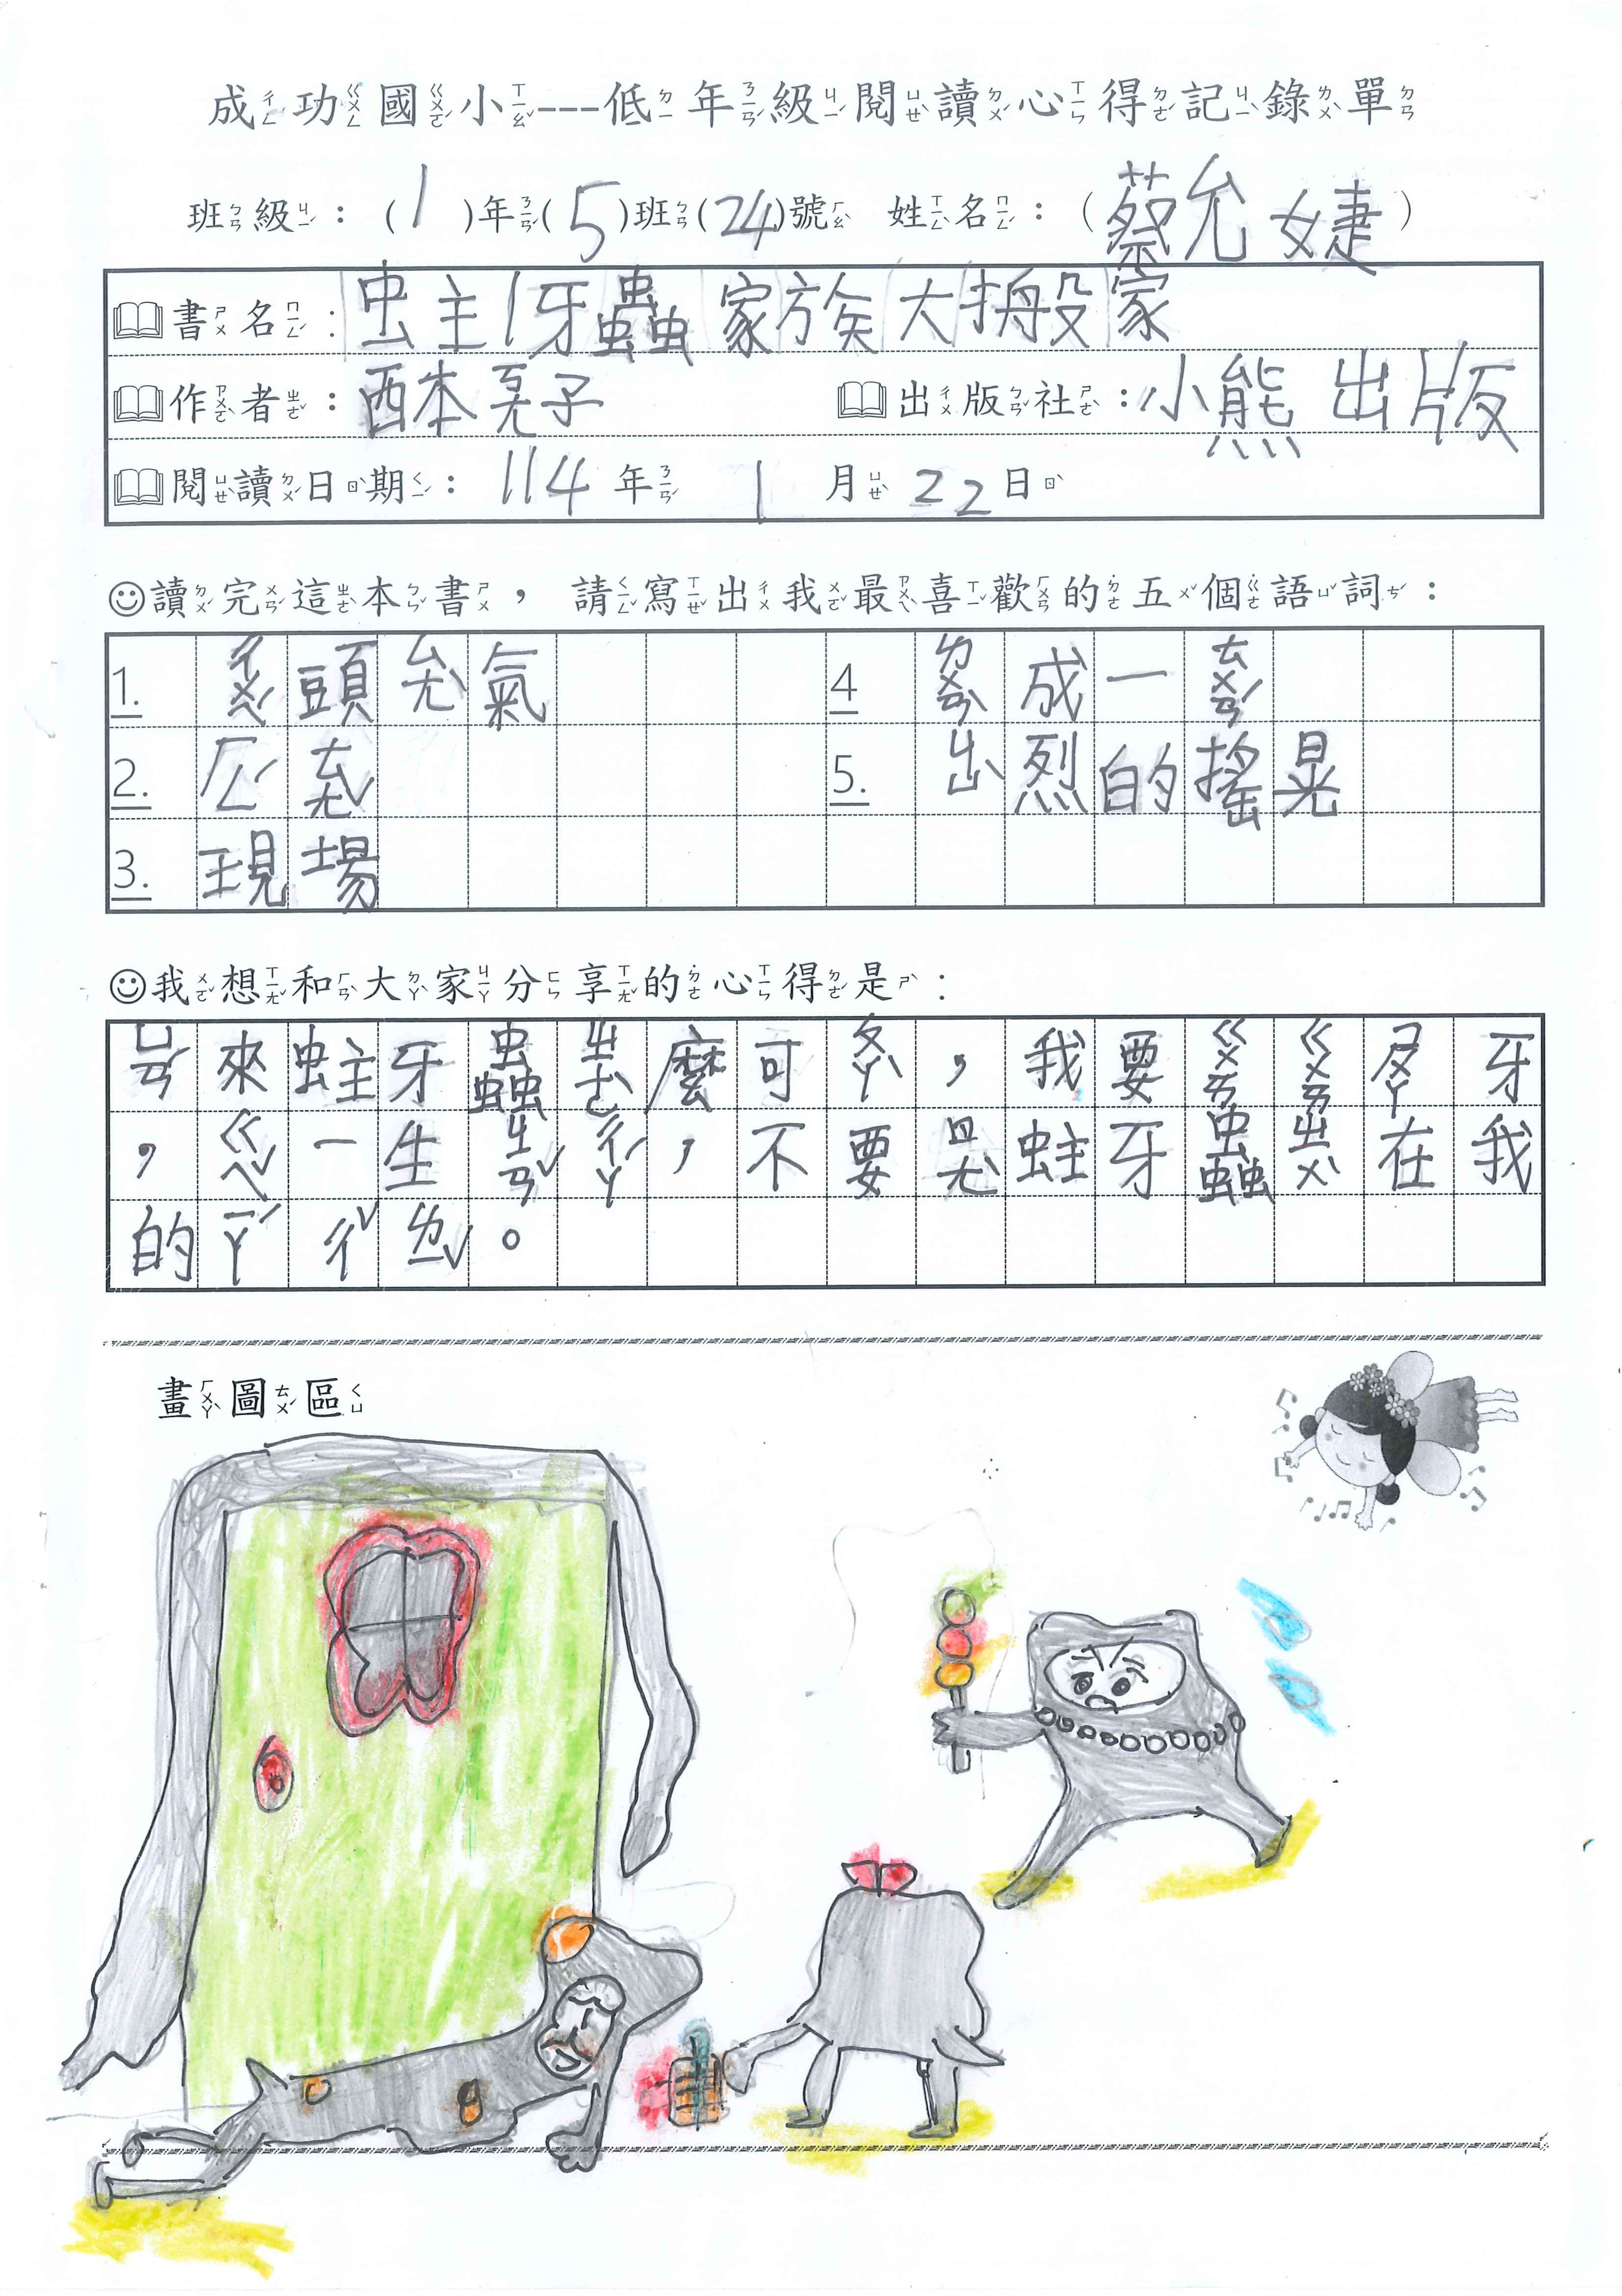 成功國小---低年級閱讀心得記錄單
班級：(1)年(5)班(24)號 姓名：(蔡允婕)
書名：蛀牙蟲家族大搬家
作者：西本 子 出版社：小熊出版
閱讀日期：114年 1月 22日
讀完這本書，請寫出我最喜歡的五個語詞：
1. ㄔㄨㄟˊ頭ㄙㄤˋ氣
4 ㄌㄨㄢˋ成一ㄊㄨㄢˊ
2. ㄏㄥˊㄊㄤˇ
5. ㄐㄩˋ烈的搖晃
3. 現場
我想和大家分享的心得是：
ㄩㄢˊ來蛀牙蟲ㄓㄜˋ麼可ㄆㄚˋ，我要ㄍㄨㄞㄍㄨㄞㄕㄨㄚ牙
，ㄍㄟˇ一生ㄐㄧㄢˇㄔㄚˊ，不要ㄖㄤˋ蛀牙蟲ㄓㄨˋ在我
的ㄧㄚˊㄔˇㄌㄧˇ。
畫圖區